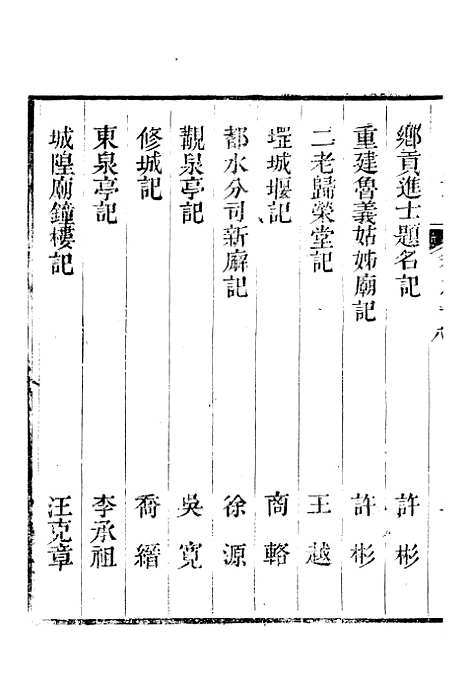 鄉貢進士題名記 許彬
重建魯義姑姊廟記 許彬
二老歸榮堂記 王越
堽城堰記 商輅
都水分司新廨記 徐源
觀泉亭記 吳寬
修城記 喬縉
東泉亭記 李承祖
城隍廟鐘樓記 汪克章